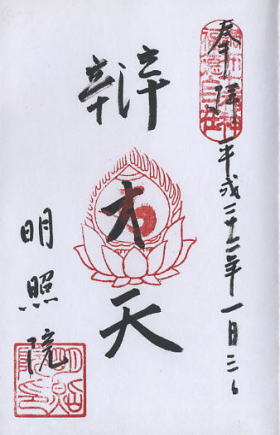 奉拝
平成二十二年一月三日
辯才天
明照院